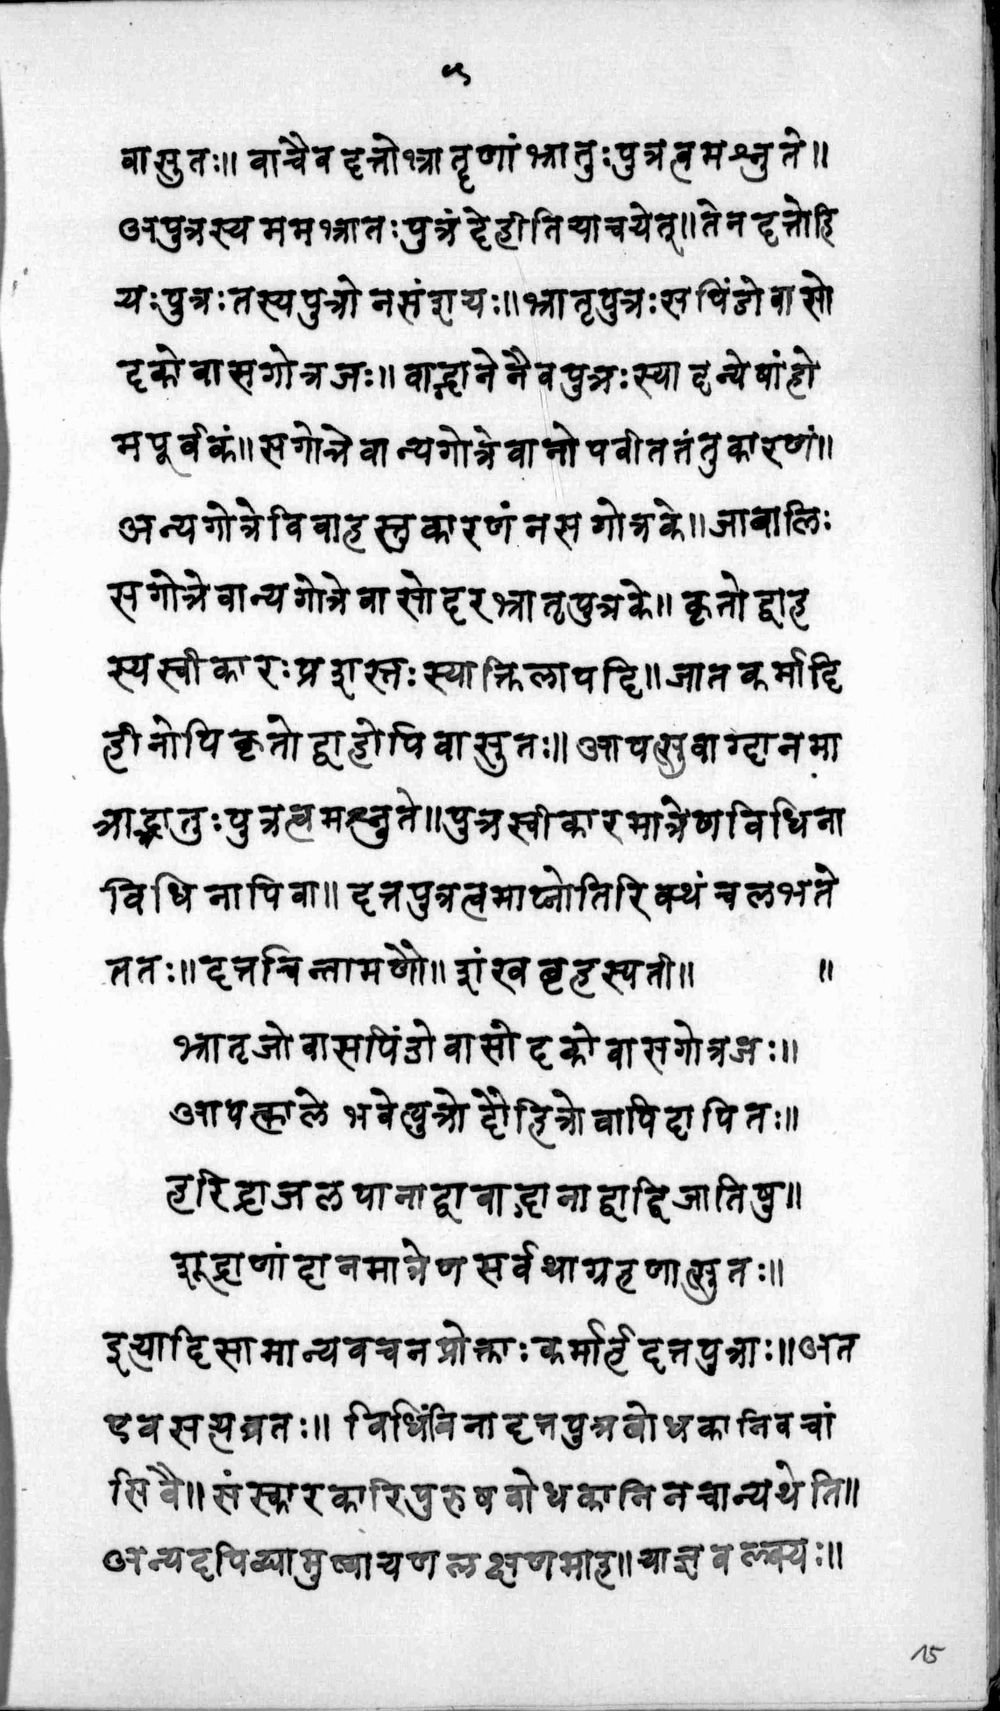 ५
वासुतः॥ वाचैव दत्तोभ्रातॄणां भ्रातुःपुत्रत्वमश्नुते॥
अपुत्रस्य मम भ्रातःपुत्रं देहीतियाचयेत्॥ तेन दत्तोहि
यःपुत्रःतस्यपुत्रो नसंशयः॥ भ्रातृपुत्रःसपिंडोवासो
दकोवासगोत्रजः॥ वाद्गानेनैवपुत्रःस्यादन्येषांहो
मपूर्वकं॥ सगोत्रेवान्यगोत्रेवानोपवीतंतुकारणं॥
अन्यगोत्रेविवाहस्तुकारणंनसगोत्रके॥ जाबालिः
सगोत्रेवान्यगोत्रेवासोदरभ्रातृपुत्रके॥ कृतोद्वाह
स्यस्वीकारःप्रशस्तःस्यात्किलापदि॥ जातकर्मादि
हीनोपिकृतोद्वाहोपिवासुतः॥ आपत्सुवाग्दानमा
त्राद्भ्रातुःपुत्रत्वमश्नुते॥ पुत्रस्वीकारमात्रेणविधिना
विधिनापिवा॥ दत्तपुत्रत्वमाप्नोतिरिक्थंचलभते
ततः॥ दत्तचिन्तामणौ॥ शंखबृहस्पती॥ ॥
भ्रातृजोवासपिंडोवासोदकोवासगोत्रजः॥
आपत्काले भवेत्पुत्रोदौहित्रोवापिदापितः॥
हरिद्राजलपानाद्वावाद्गानाद्वाद्विजातिषु॥
शूद्राणांदानमात्रेणसर्वथाग्रहणात्सुतः॥
इत्यादिसामान्यवचनप्रोक्ताःकर्मार्हदत्तपुत्राः॥ अत
एवसत्यव्रतः॥ विधिंविनादत्तपुत्रबोधकानिवचां
सिवै॥ संस्कारकारिपुरुषबोधकानिनचान्यथेति॥
अन्यदपिव्द्यामुष्यायणलक्षणमाह॥ याज्ञवल्क्यः॥
15